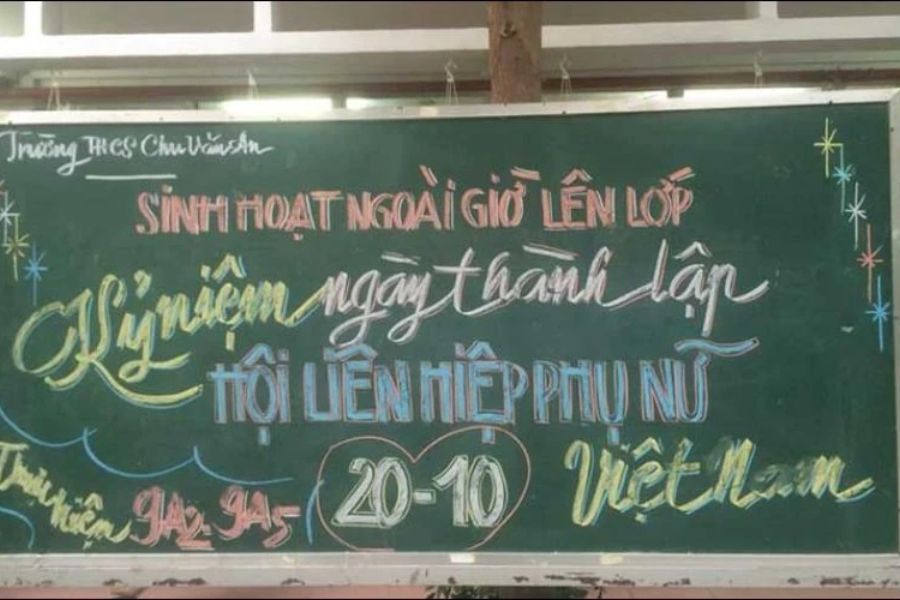 Trường THCS Chu Văn An
SINH HOẠT NGOÀI GIỜ LÊN LỚP
Kỷ niệm ngày thành lập
HỘI LIÊN HIỆP PHỤ NỮ
20-10 Việt Nam
Thực hiện 9A2-9A5